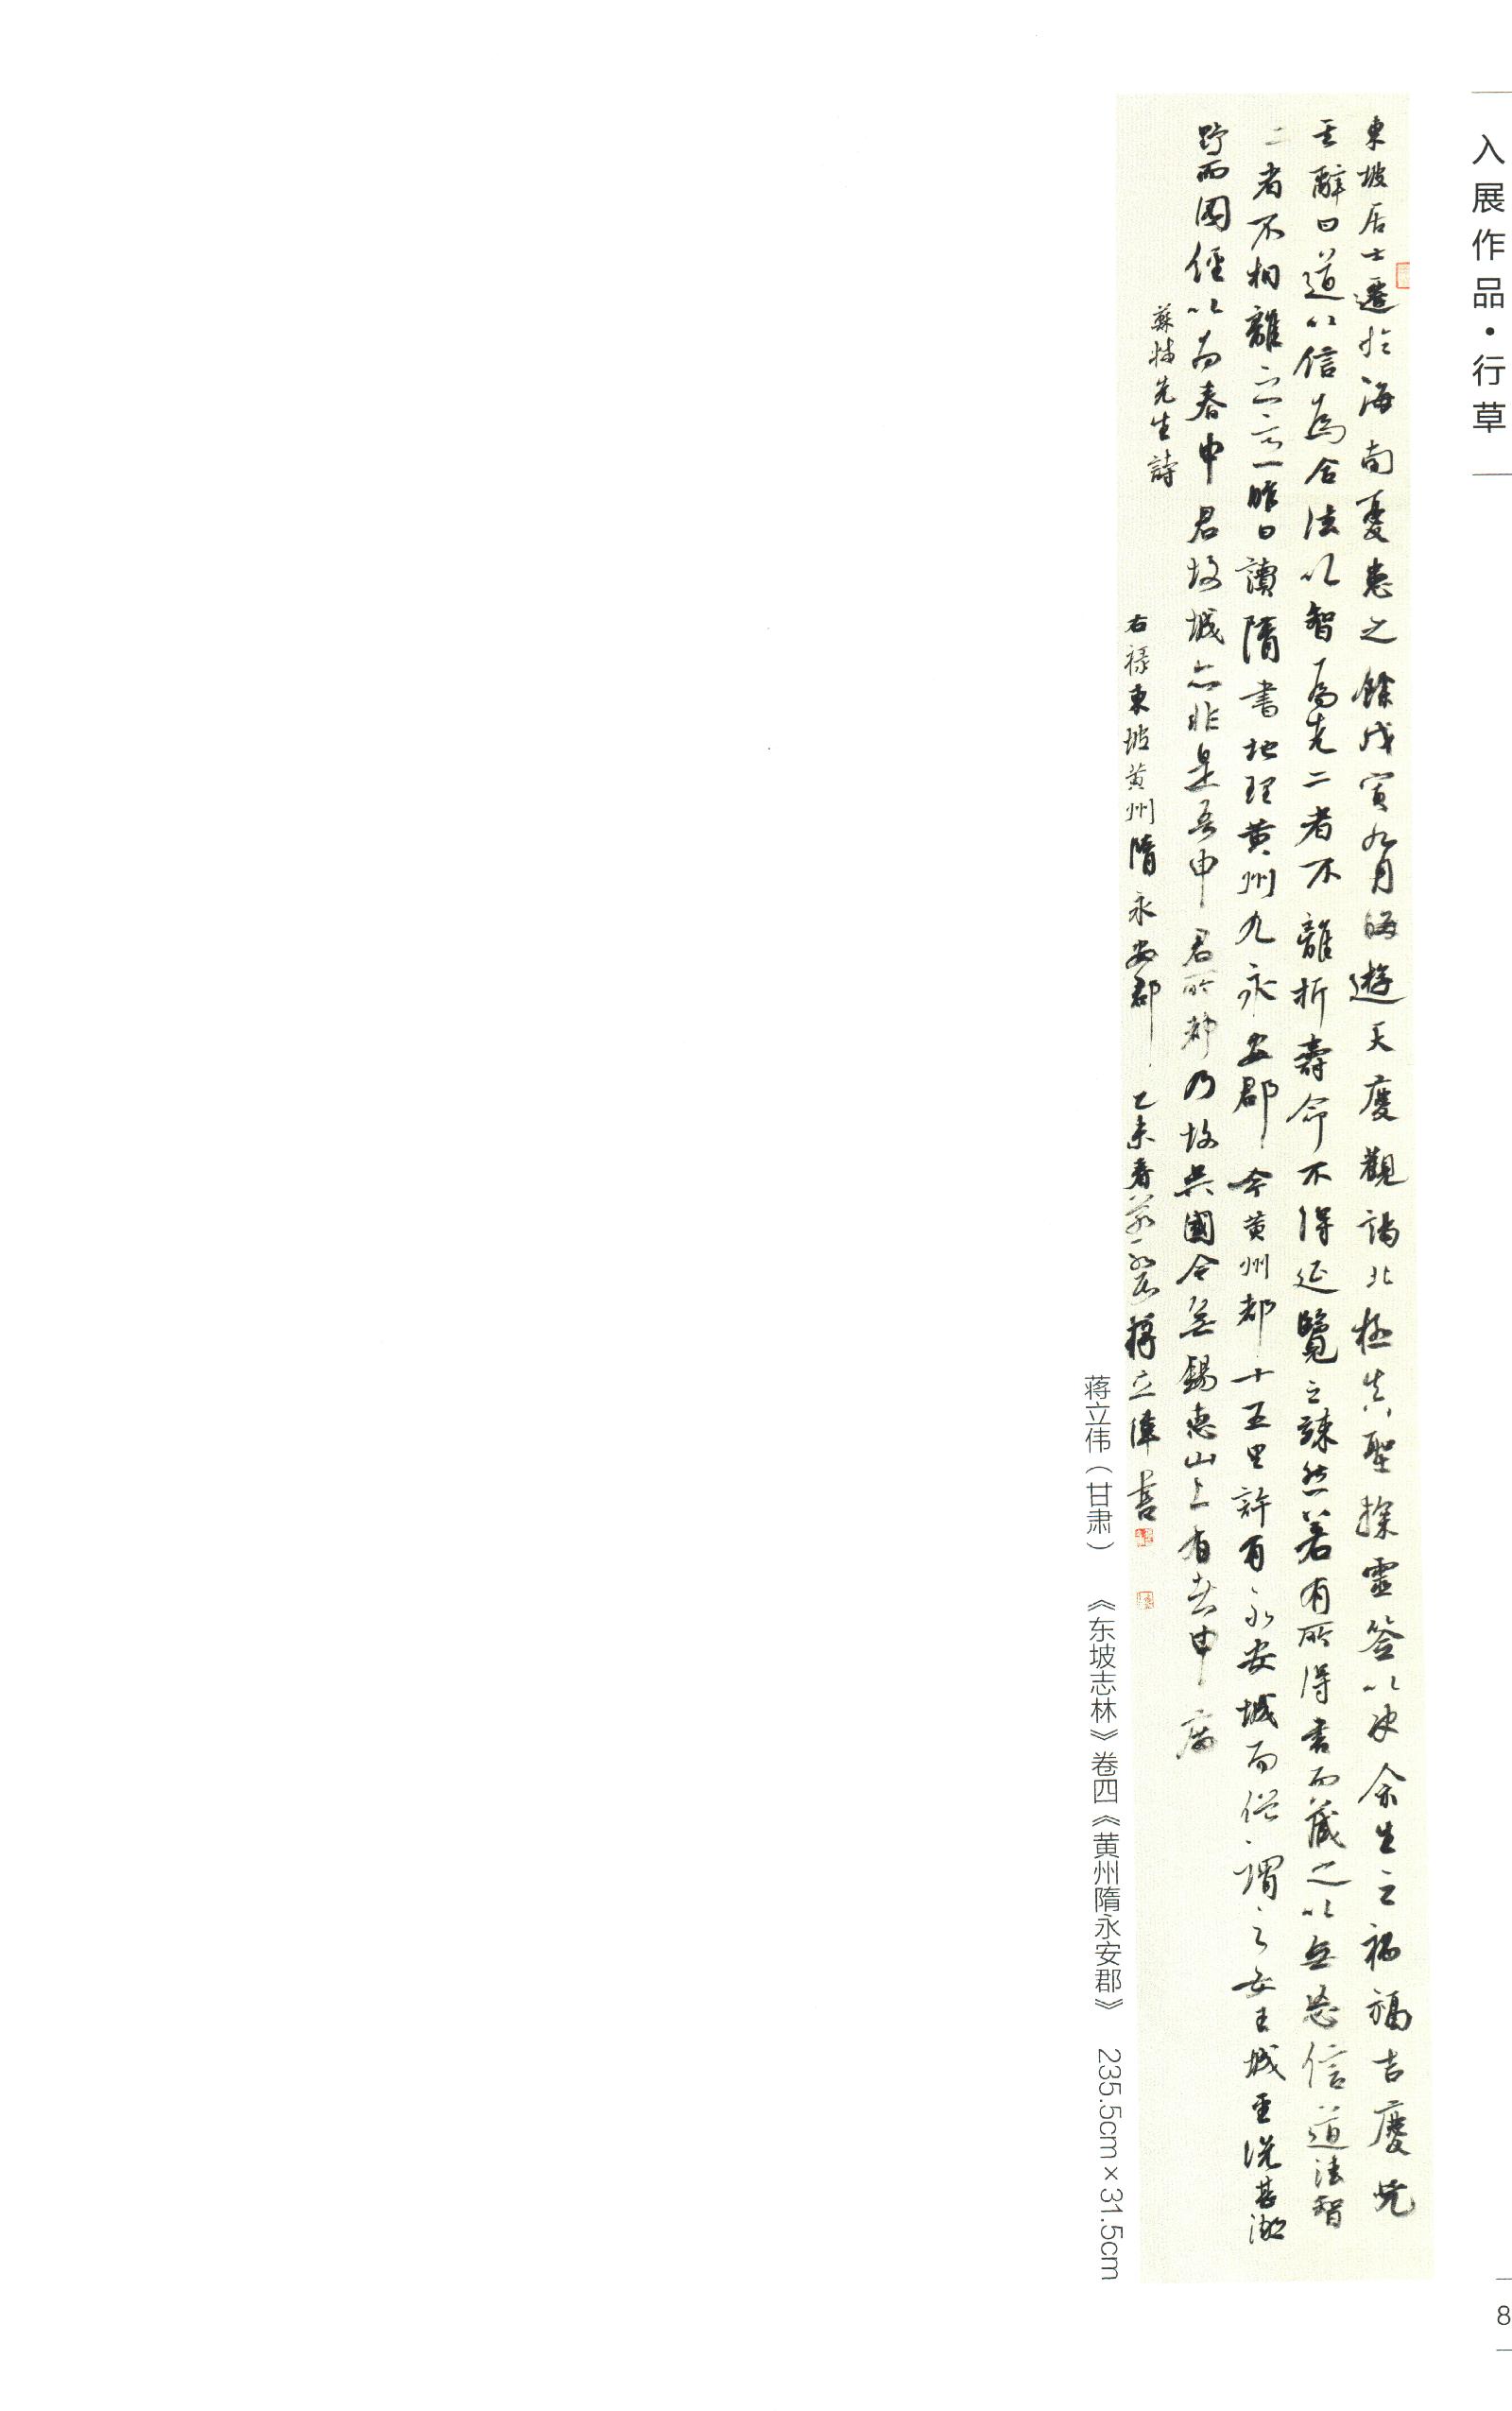 入展作品·行草
東坡居士遷於海南憂患之餘戊寅九月晦遊天慶觀謁北極真聖探靈签以决余生之禍福吉凶
其辭曰道以信爲合法以智爲先二者不離析壽命不得延覽之竦然若有所得書而藏之以無忘信道法智
二者不相離之言一昨日讀隋書地理黄州乃永安郡今黄州都十五里許有永安城而俗謂之女王城其説甚鄙
野而圖經以为春申君故城亦非是春申君所都乃故吴國今無錫惠山上有春申廟
蘇軾先生詩
右禄東坡黄州隋永安郡
乙未春
蒋立偉書
蒋立伟（甘肃）
《东坡志林》卷四《黄州隋永安郡》
235.5cm×31.5cm
8